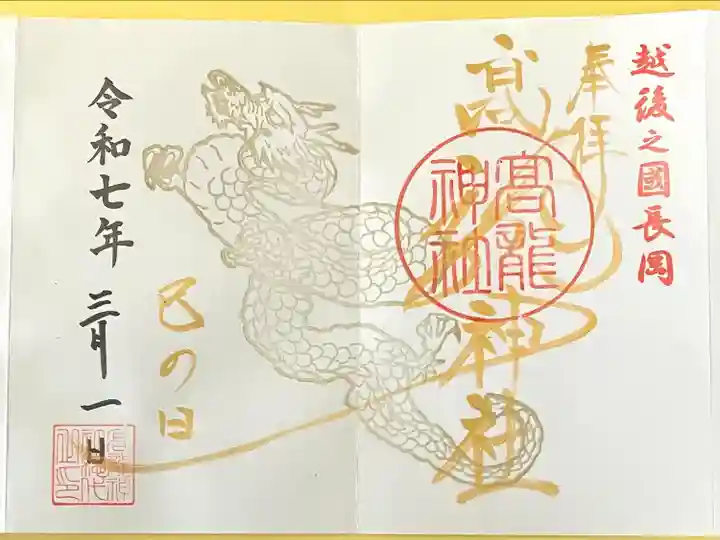 越後之國長岡
奉拝
高龍神社
高龍
神社
巳の日
令和七年 三月一日